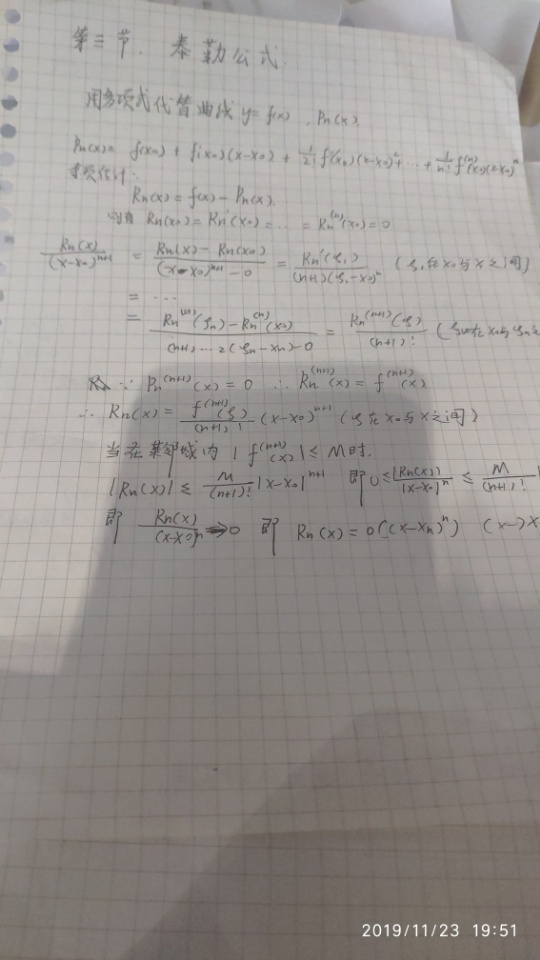 第三节. 泰勒公式.
用多项式代替曲线 y=f(x), Pn(x).
Pn(x)= f(x0) + f'(x0)(x-x0) + 1/2! f''(x0)(x-x0)^2 + … + 1/n! f^(n)(x0)(x-x0)^n
Rn(x)=f(x)-Pn(x).
Rn(x0)=Rn'(x0)=…=Rn^(n)(x0)=0
Rn(x)/(x-x0)^(n+1) = (Rn(x)-Rn(x0))/((x-x0)^(n+1)-0) = Rn'(ξ1)/((n+1)(ξ1-x0)^n) (ξ1在x0与x之间)
= …
= (Rn^(n)(ξn)-Rn^(n)(x0))/((n+1)…2(ξn-xn)-0) = Rn^(n+1)(ξ)/(n+1)! (ξ在x0与ξn之
∵ Pn^(n+1)(x)=0 ∴ Rn^(n+1)(x)=f^(n+1)(x)
∴ Rn(x)= f^(n+1)(ξ)/(n+1)! (x-x0)^(n+1) (ξ在x0与x之间)
当在某邻域内 |f^(n+1)(x)|≤M时.
|Rn(x)|≤ M/(n+1)! |x-x0|^(n+1) 即 0≤|Rn(x)|/|x-x0|^n ≤ M/(n+1)! |
即 Rn(x)/(x-x0)^n →0 即 Rn(x)=o((x-xn)^n) (x→x
2019/11/23 19:51